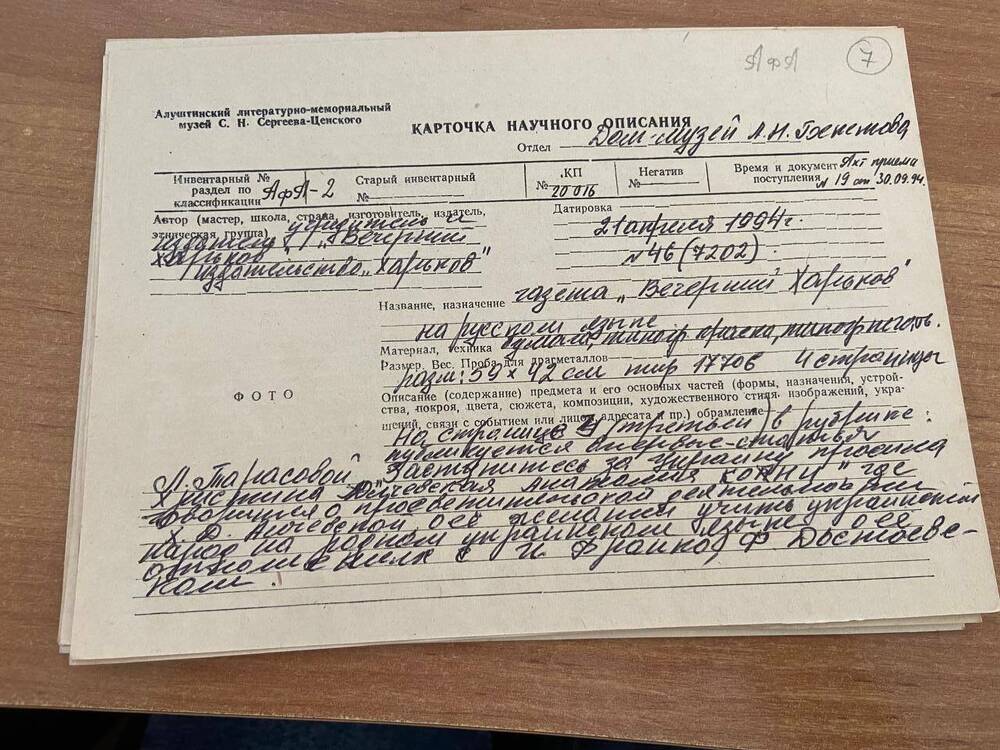 АфА 7
Алуштинский литературно-мемориальный
музей С. Н. Сергеева-Ценского
КАРТОЧКА НАУЧНОГО ОПИСАНИЯ
Отдел Дом-музей А.Н.
Инвентарный №
раздел по
классификации АфА-2
Старый инвентарный
№
КП
№ 20016
Негатив
№
Время и документ Акт приема
поступления N 19 от 30.09.94.
Автор (мастер, школа, страна, изготовитель, издатель,
этническая группа) учредитель и
издатель „Вечерний
Харьков"
издательство „Харьков"
Датировка
21 апреля 1994г.
N 46 (7202)
Название, назначение газета „Вечерний Харьков"
на русском языке
Материал, техника бумага, типогр. краска, типогр. печать.
Размер. Вес. Проба для драгметаллов
разм: 59 х 42 см тир 17706 4 страницы
ФОТО
Описание (содержание) предмета и его основных частей (формы, назначения, устрой-
ства, покроя, цвета, сюжета, композиции, художественного стиля, изображений, укра-
шений, связи с событием или лицом, адресата и пр.) обрамление
На странице 3 (третьей) в рубрике:
публикуется впервые статья
Л. Тарасовой „Заступитесь за Украину просила
Христина Алчевская Анатолия Кони" где
говорится о просветительской деятельности
Х. Д. Алчевской о её желании учить украинский
народ на родном украинском языке, о её
отношениях с И Франко, Ф Достоевс-
ким.